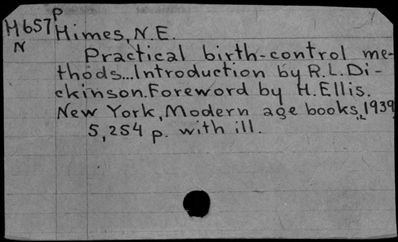 P
H657 Himes, N.E.
N
Practical birth-control me-
thods...Introduction by R.L.Di-
ckinson.Foreword by H.Ellis.
New York, Modern age books, 1939
5, 254 p. with ill.